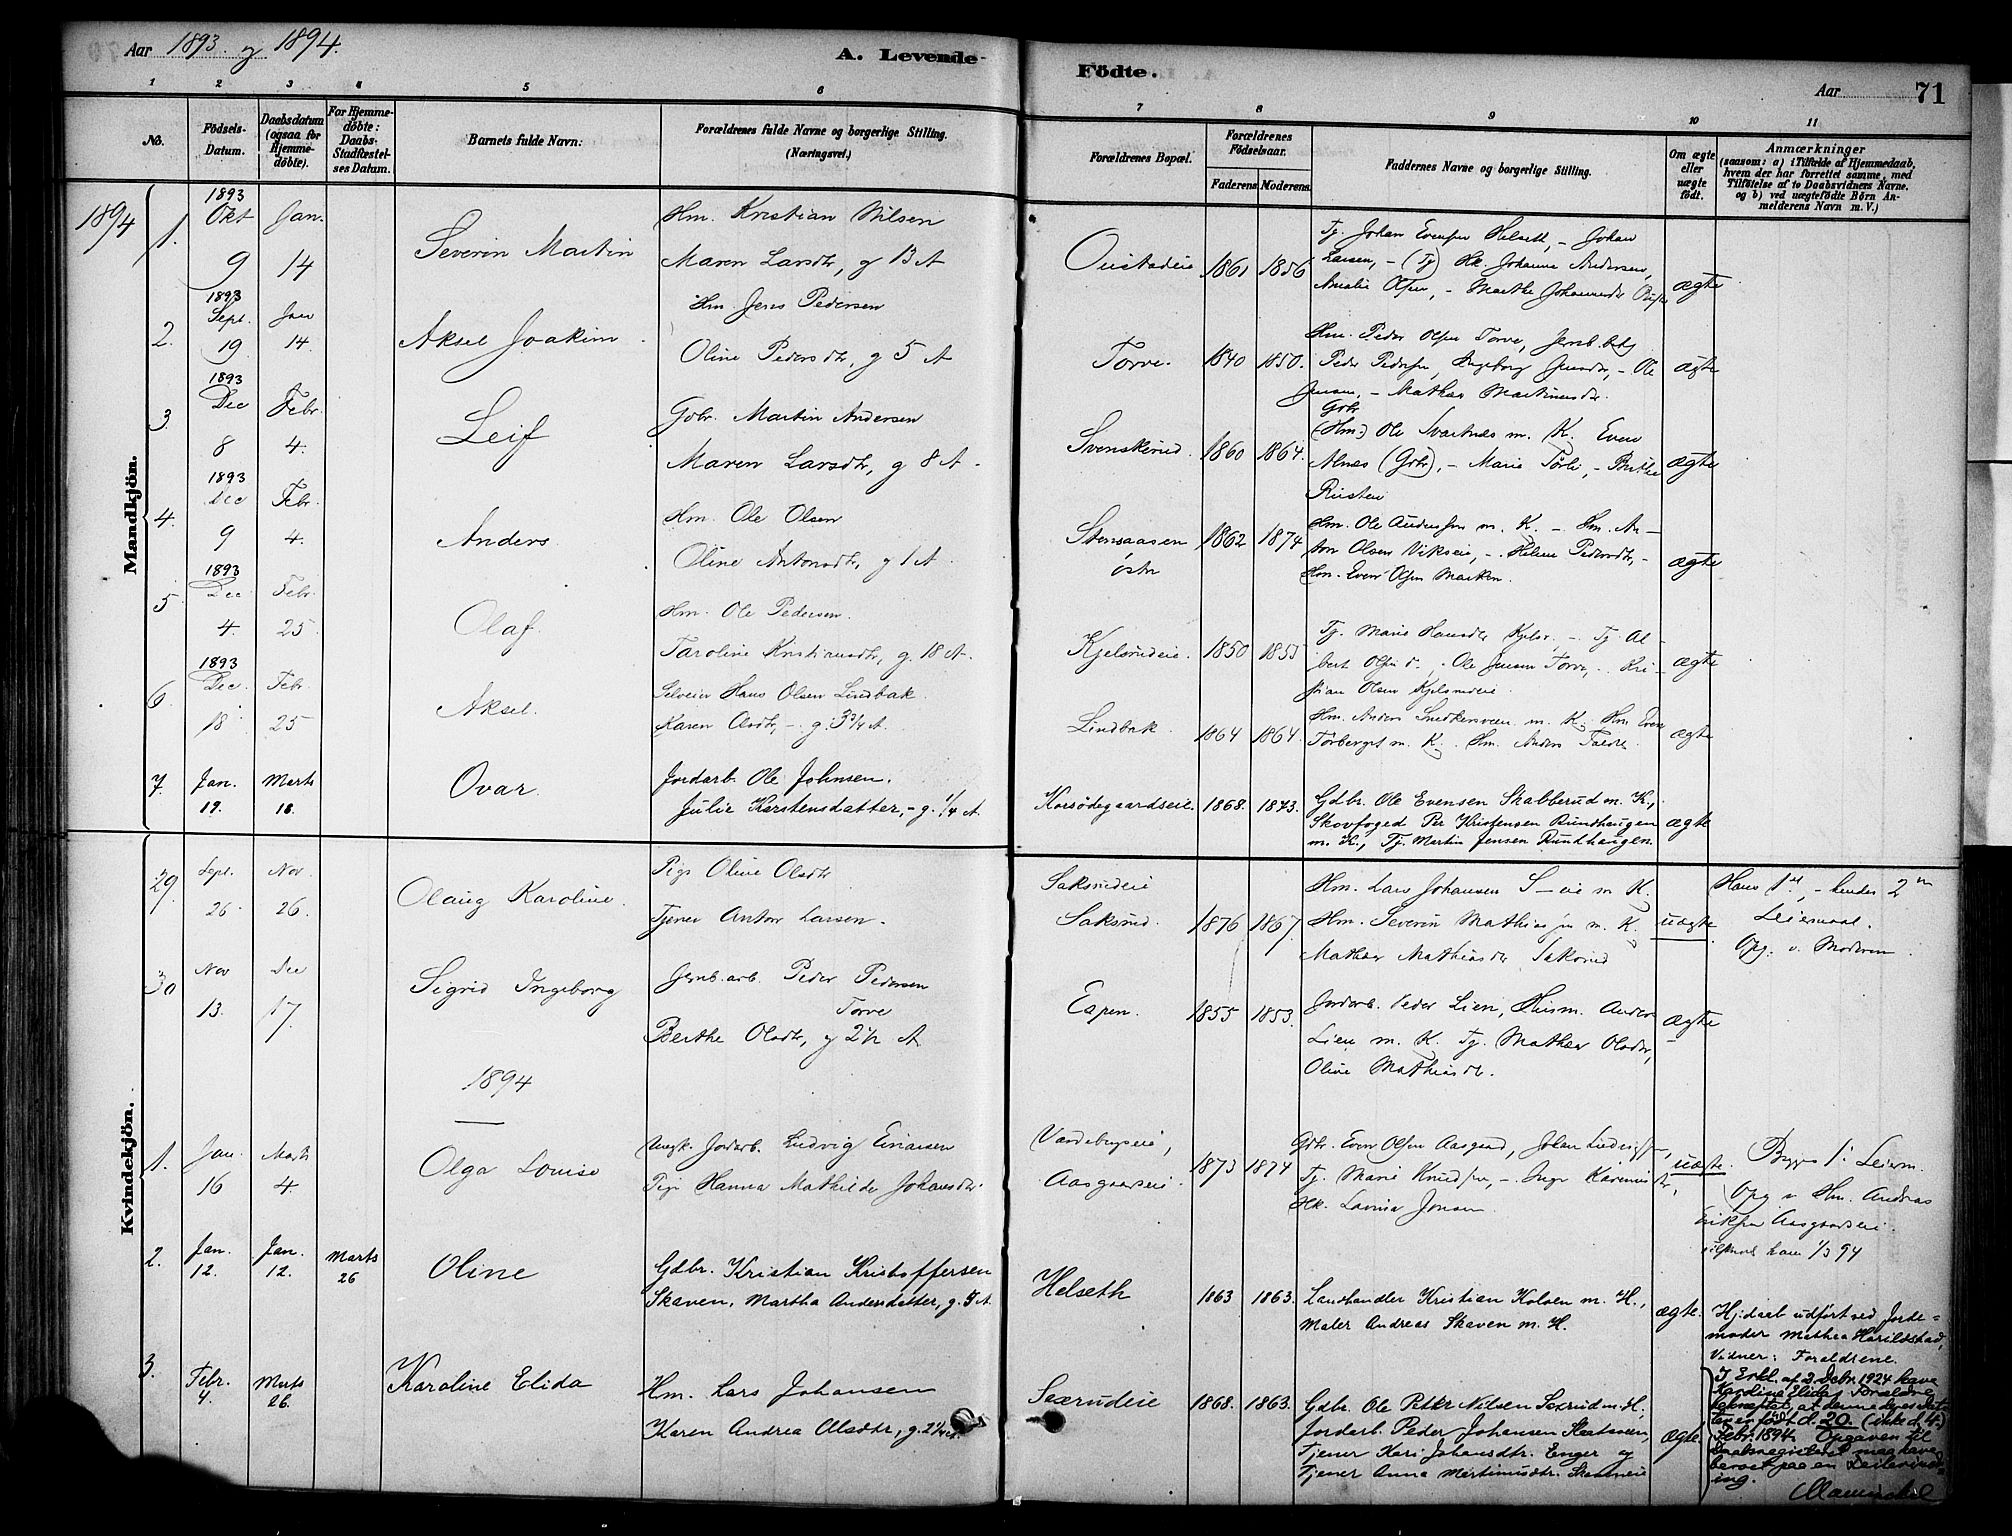 Aar 1893 og 1894.
A. Levende
Födte.
Aar
71
1 2 3 4 5 6 7 8 9 10 11
No.
Födsels-Datum.
Daabsdatum (ogsaa for Hjemme-döbte).
For Hjemme-döbte: Daabs-Stadfæstel-ses Datum.
Barnets fulde Navn:
Forældrenes fulde Navne og borgerlige Stilling.
(Næringsvei.)
Forældrenes Bopæl.
Forældrenes Födselsaar.
Faderens. Moderens.
Faddernes Navne og borgerlige Stilling.
Om ægte eller uægte født.
Anmærkninger
(saasom: a) i Tilfælde af Hjemmedaab,
hvem der har forrettet samme, med
Tilføielse af to Daabsvidners Navne.
og b) ved uægtefödte Börn An-
melderens Navn m. V.)
Mandkjön.
1894
1. 1893 Okt 9 Jan. 14
Severin Martin
Hm. Kristian Nilsen
Maren Larsdtr, g 13 A
1861 1856
Tj. Johan Evensen Helseth, – Johan
Larsen, – (Tj) Hk. Johanne Andersen,
Amalie Olsen, – Marthe
ægte
2. 1893 Sept. 19 Jan 14.
Aksel Joakim
Hm. Jens Pedersen
Oline Pedersdtr, g 5 A
Torve. 1840 1850.
Hm. Peder Olsen Torve, Jernb. arb
Peder Pedersen, Ingeborg Jensdtr, – Ole
Jensen, – Mathea Martinusdtr.
ægte
3. 1893 Dec 8 Febr. 4.
Leif
Gbr. Martin Andersen
Maren Larsdtr, g 8 A.
Svenskerud. 1860 1864.
Gbr
(Hm.) Ole Svartnæs m. K. Even
Alnæs (Gbr), – Marie – Berthe
Rusten
ægte
4. 1893 Dec 9 Febr. 4.
Anders.
Hm. Ole Olsen
Oline Antonsdtr, g 1 A.
Stensaasen
østre
1862 1874
Hm. Ole Andersen m. K. – Hm. An-
ton Olsen Vikseie, – Helene Pedersdtr, –
Hm. Even Olsen Marken.
ægte
5. 1893 Dec 4. Febr. 25.
Olaf.
Hm. Ole Pedersen.
Karoline Kristiansdtr, g. 18 A.
Kjelsrudeie. 1850 1853
Tj. Marie Hansdtr – Tj. Al-
bert Olsen d., Ole Jensen Torve, Kri-
stian Olsen Kjelsrudeie.
ægte
6. 1893 Dec. 18 Febr. 25
Aksel.
Selveier Hans Olsen Lindbak.
Karen Olsdtr, – g. 3 3/4 A.
Lindbak. 1864 1864.
Hm. Anders Snedkersveen m. K. Hm. Even
Torberget m. K. Hm. Anders
ægte
7. Jan. 19. Marts 18.
Ovar.
Jordarb. Ole Johnsen.
Julie Karstensdatter, – g. 1/4 A.
Korsödegaardseie. 1868. 1873.
Gdbr. Ole Evensen Skabberud m. K.,
Skovfoged Per Kristensen Rundhaugen
m. K., Tj. Martin Jensen Rundhaugen.
ægte
Kvindekjön.
29 Sept. 26 Nov. 26.
Olaug Karoline.
Pige Oline Olsdtr
Tjener Anton Larsen.
Saksrudeie
Saksrud. 1876 1867
Hm. Lars Johansen S–eie m K.
Hm. Severin Mathiasen m. K.
Mathea Mathiasdtr Saksrud
uægte
Hans 1ste, – hendes 2det
Leiermaal.
Opg. v. Moderen
30 Nov 13. Dec 17.
Sigrid Ingeborg
Jernb. arb. Peder Pedersen
Torve
Berthe Olsdtr, g 2 1/2 A.
1855 1853.
Jordarb. Peder Lien, Husm. Anders
Lien m. K. Tj. Mathea Olsdtr,
Oline Mathiasdtr.
ægte
1894
1. Jan. 16 Marts 4.
Olga Louise
Ungk. Jordarb. Ludvig Einarsen
Pige Hanna Mathilde Johansdtr.
Aasgaardseie. 1873 1874
Gdbr. Even Olsen Aasgaard, Johan
Tj. Marie Knudsen, – Inga
Hk. Lavina Jonsen
uægte.
Begges 1ste Leierm.
Opg v Hm. Andreas
Eriksen Aasgaardseie
1/3 94
2. Jan. 12. Jan. 12. Marts 26
Oline
Gdbr. Kristian Kristoffersen
Skaven, Martha Andersdatter, g. 5 A.
Helseth 1863 1863.
Landhandler Kristian Kolven m. H.,
Maler Andreas Skaven m. H.
ægte.
Hj. daab udført ved Jorde-
moder Mathea Harildstad,
Vidner: Forældrene.
3. Febr. 4 Marts 26.
Karoline Elida
Hm. Lars Johansen
Karen Andrea Olsdtr, g. 2 1/4 A.
Sæxrudeie 1868. 1863.
Gdbr. Ole Petter Nilsen Sæxrud m. H,
Jordarb. Peder Johansen
Tjener Kari Johansdtr. Enger og
Tjener Anna Martinusdtr.
ægte.
I Erkl. af 2. Febr. 1924 have
Karoline Elidas Forældre
bekræftet, at denne deres dat-
ter er født d. 20. (ikke d. 4.)
Febr. 1894. Opgaven til
Daabsregisteret maa have
beroet paa en Feilerind-
ring.